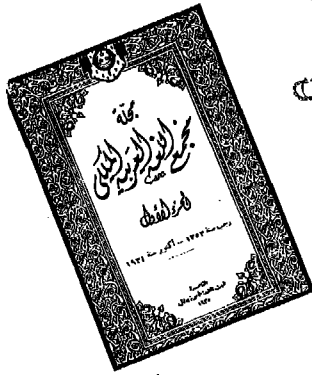 مجلة
مجمع اللغة العربية الملكي
الجزء الأول
رجب سنة ١٣٥٣ - أكتوبر سنة ١٩٣٤
القاهرة
١٩٣٥